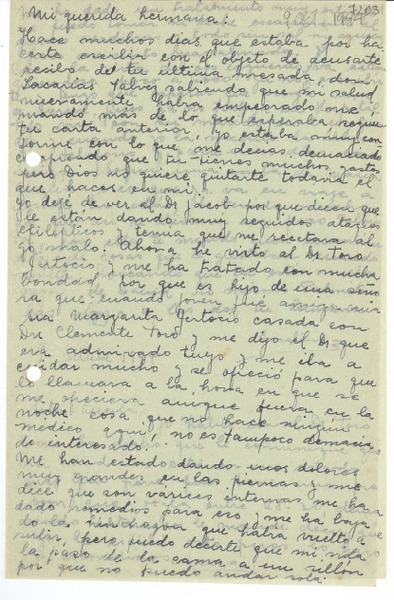 Mi querida hermana: 9 Oct 1944
Hace muchos días que estaba por ha
certe escribir con el objeto de acusarte
recibo de tu última mesada, don
Zacarías sabiendo que mi salud
nuevamente había empeorado me
mandó más de lo que esperaba según
tu carta anterior, yo estaba muy con
forme con lo que me decías, demasiado
comprendo que tu tienes muchos gastos
pero Dios no quiere quitarte todavía el
que haces en mí.
Yo dejé de ver al Dr Jacob por que dicen que
le están dando muy seguidos ataques
epilépticos y temía que me recetara al
go malo. Ahora he visto al Dr. Toro
y me ha tratado con mucha
bondad por que es hijo de una seño
ra que cuando joven fue amiga mia
Margarita casada con
Dn Clemente Toro y me dijo el Dr que
era admirador tuyo y me iba a
cuidar mucho y se ofreció para que
lo llamara a la hora en que se
me ofreciera aunque fuera en la
noche cosa que no hace ningún
médico aquí, no es tampoco demacia
do interesado.
Me han estado dando unos dolores
muy grandes en las piernas y me
dice que son várices internas me ha
dado remedios para eso y me ha baja
do la hinchazón que había vuelto a
subir, pero puedo decirte que mi vida
la paso de la cama a un sillón
por que no puedo andar sola.